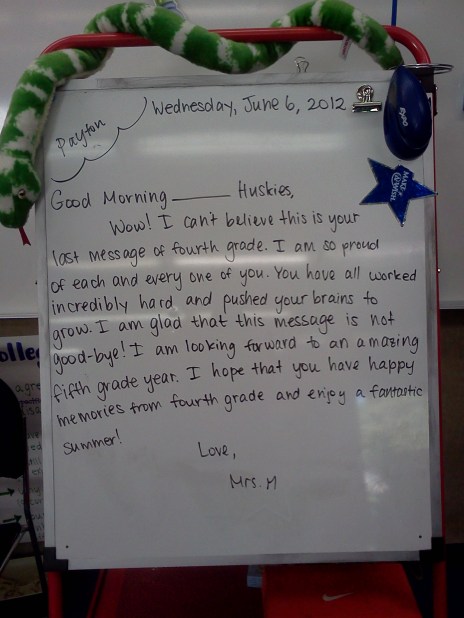 Wednesday, June 6, 2012
Payton
EXPO
MAKE A WISH
Good Morning ______ Huskies,
Wow! I can't believe this is your
last message of fourth grade. I am so proud
of each and every one of you. You have all worked
incredibly hard and pushed your brains to
grow. I am glad that this message is not
good-bye! I am looking forward to an amazing
fifth grade year. I hope that you have happy
memories from fourth grade and enjoy a fantastic
summer!
Love,
Mrs. M